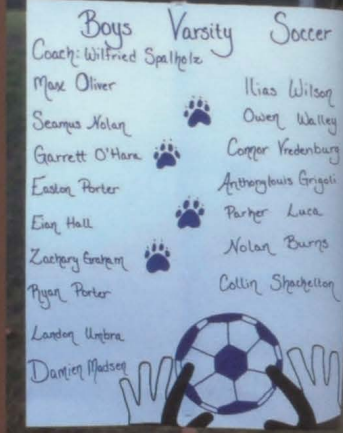 Boys Varsity Soccer
Coach: Wilfried Spalholz
Max Oliver
Seamus Nolan
Garrett O'Hara
Easton Porter
Eian Hall
Zachary Graham
Ryan Porter
Landon Umbra
Damien Madsen
Ilias Wilson
Owen Walley
Connor Vredenburg
Anthonylouis Grigoli
Parker Luca
Nolan Burns
Collin Shackelton